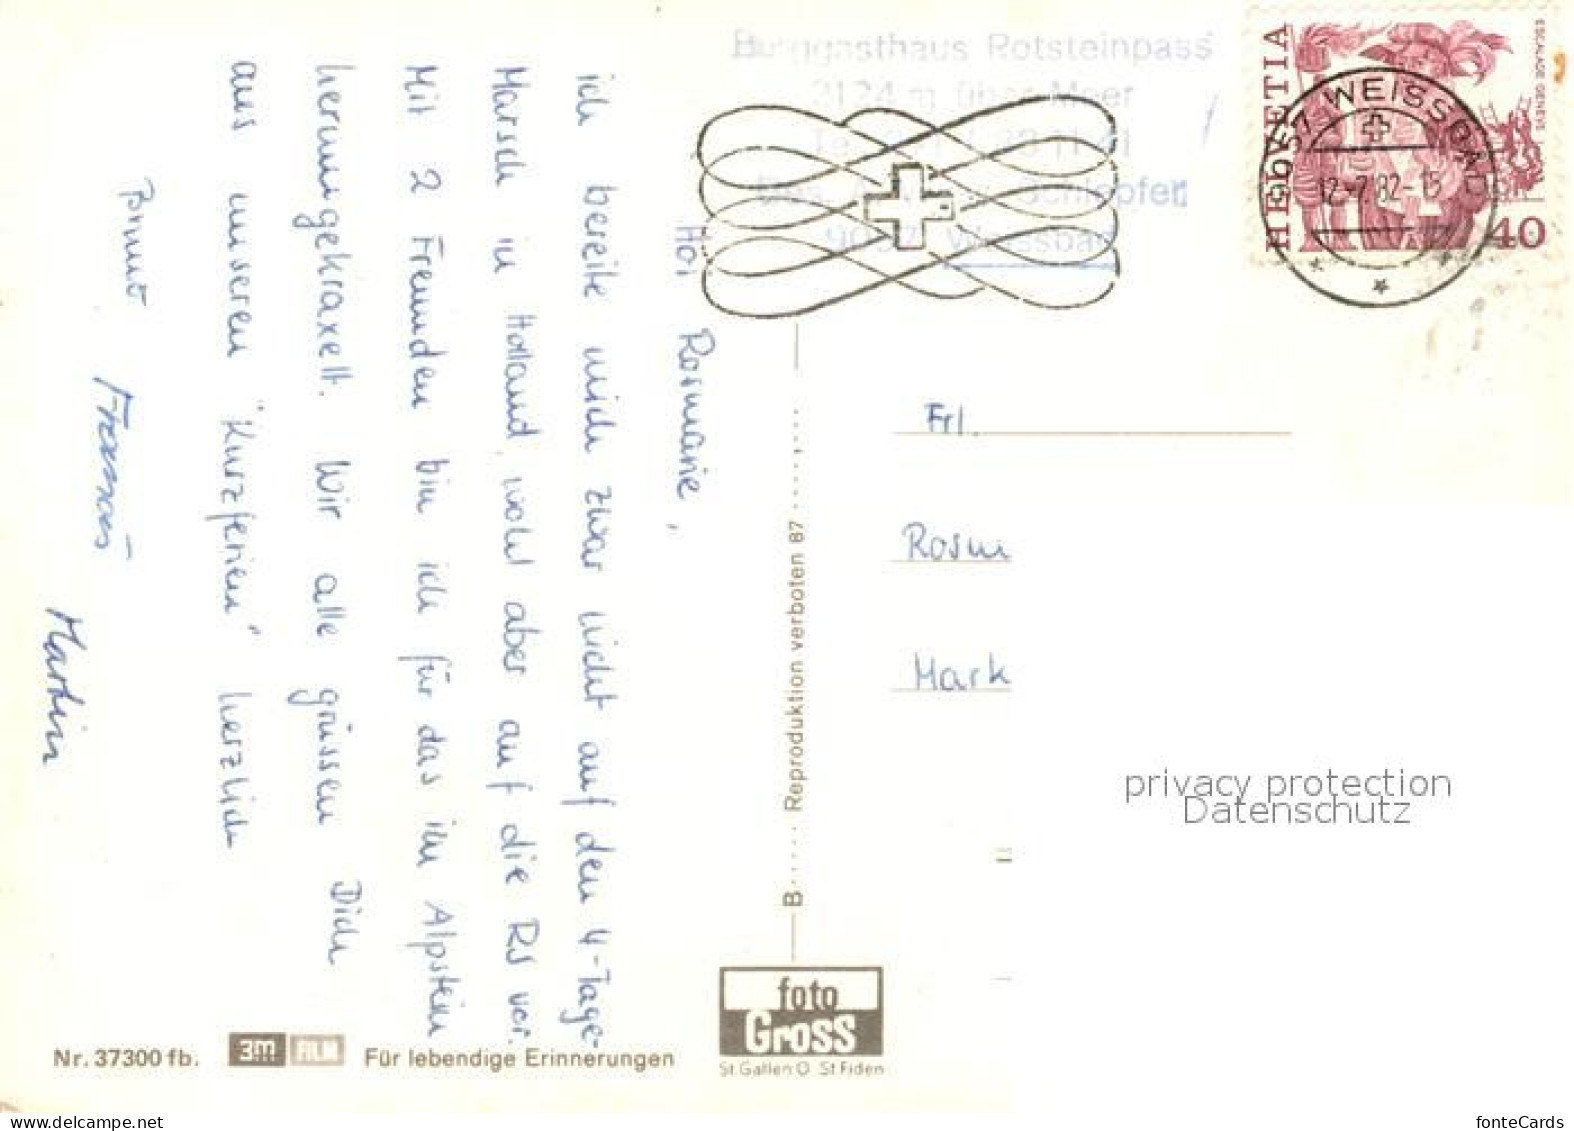 Hoi Rosmarie,
ich bereite mich zwar nicht auf den 4-Tage-
Marsch in Holland, wohl aber auf die RS vor.
Mit 2 Freunden bin ich für das im Alpstein
herumgekraxelt. Wir alle grüssen Dich
aus unseren "Kurzferien" herzlich
Bruno
Martin
Berggasthaus Rotsteinpass
2124 m über Meer
Schlepfer
9057 Weissbad
HELVETIA
ESCALADE GENÈVE
40
9057 WEISSBAD
12-7 82-15
Frl.
Rosm
Mark
B..... Reproduktion verboten 87
privacy protection
Datenschutz
foto
Gross
St.Gallen O St Fiden
Nr. 37300 fb.
3M FILM
Für lebendige Erinnerungen
www.delcampe.net
fonteCards